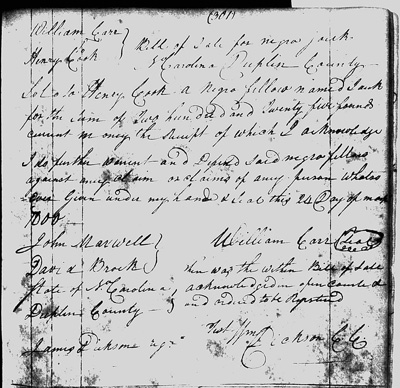 (301)
William Carr }
Henry Cook } Bill of Sale for negro Jack
N Carolina Duplin County
Sold to Henry Cook a Negro fellow named Jack
for the Sum of Two hundred and Twenty five pounds
current money the Receipt of which I acknowledge
I do further warrent and Defend Said negro fellow
against any claim or claims of any person whatso
ever Given under my hand & Seal this 24 Day of
John Maxwell } William Carr (Seal)
David Brock } then was the within Bill of Sale
State of N Carolina } acknowledged in open court
Duplin County } and ordered to be Registered
James Dickson Test Wm Dickson CC